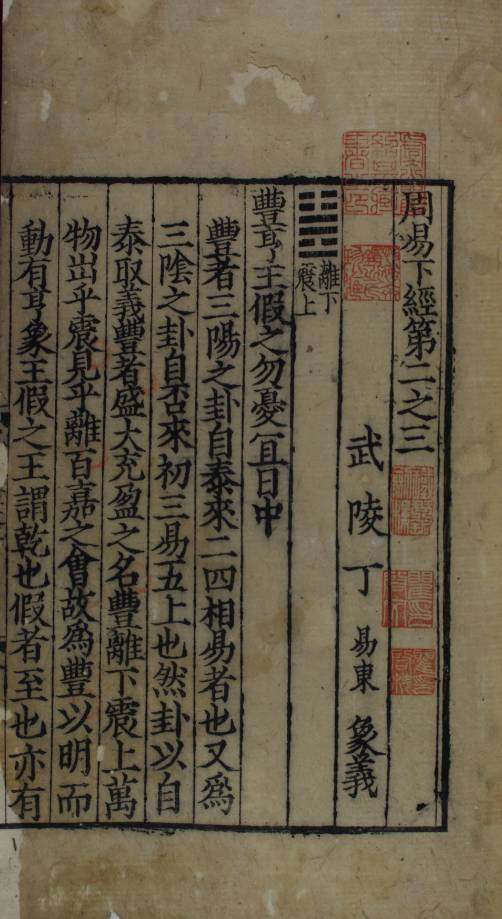 周昜下經第二之三
武陵丁易東象義
離下
震上
豐亨王假之勿憂冝日中
豐者三陽之卦自泰來二四相易者也又爲
三陰之卦自否來初三易五上也然卦以自
泰取義豐者盛大充盈之名豐離下震上萬
物出乎震見乎離百嘉之會故爲豐以明而
動有亨象王假之王謂乾也假者至也亦有